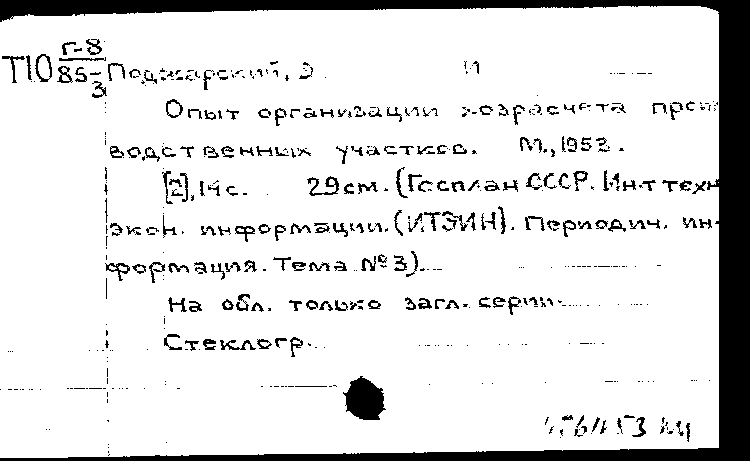 Т10 Г-8
85-3
Поджарский, Э. И
Опыт организации хозрасчета произ
водственных участков. М., 1953.
[2], 14 с. 29 см. (Госплан СССР. Ин-т техн
экон. информации. (ИТЭИН). Периодич. ин-
формация. Тема № 3).
На обл. только загл. серии.
Стеклогр.